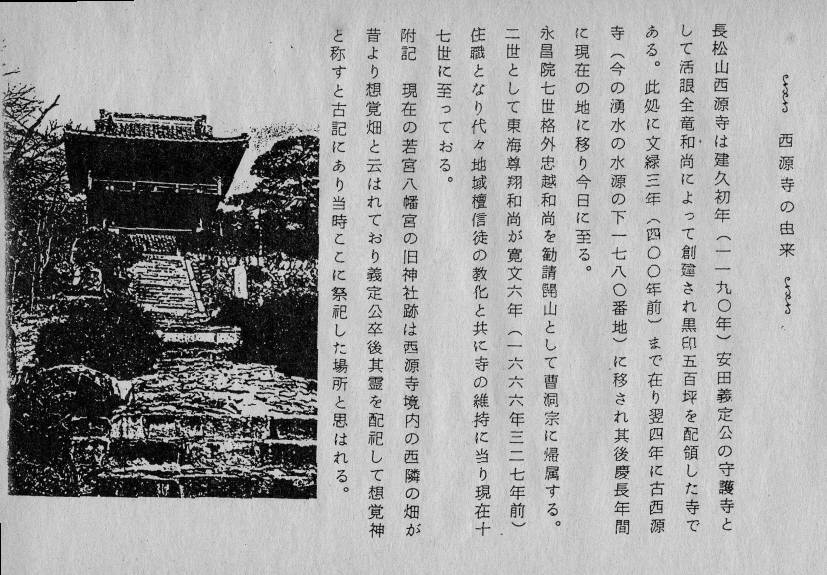 西源寺の由来
長松山西源寺は建久初年（一一九〇年）安田義定公の守護寺と
して活眼全竜和尚によって創建され黒印五百坪を配領した寺で
ある。此処に文緑三年（四〇〇年前）まで在り翌四年に古西源
寺（今の湧水の水源の下一七八〇番地）に移され其後慶長年間
に現在の地に移り今日に至る。
永昌院七世格外忠越和尚を勧請開山として曹洞宗に帰属する。
二世として東海尊翔和尚が寛文六年（一六六六年三二七年前）
住職となり代々地域檀信徒の教化と共に寺の維持に当り現在十
七世に至っておる。
附記　現在の若宮八幡宮の旧神社跡は西源寺境内の西隣の畑が
昔より想覚畑と云はれており義定公卒後其霊を配祀して想覚神
と称すと古記にあり当時ここに祭祀した場所と思はれる。